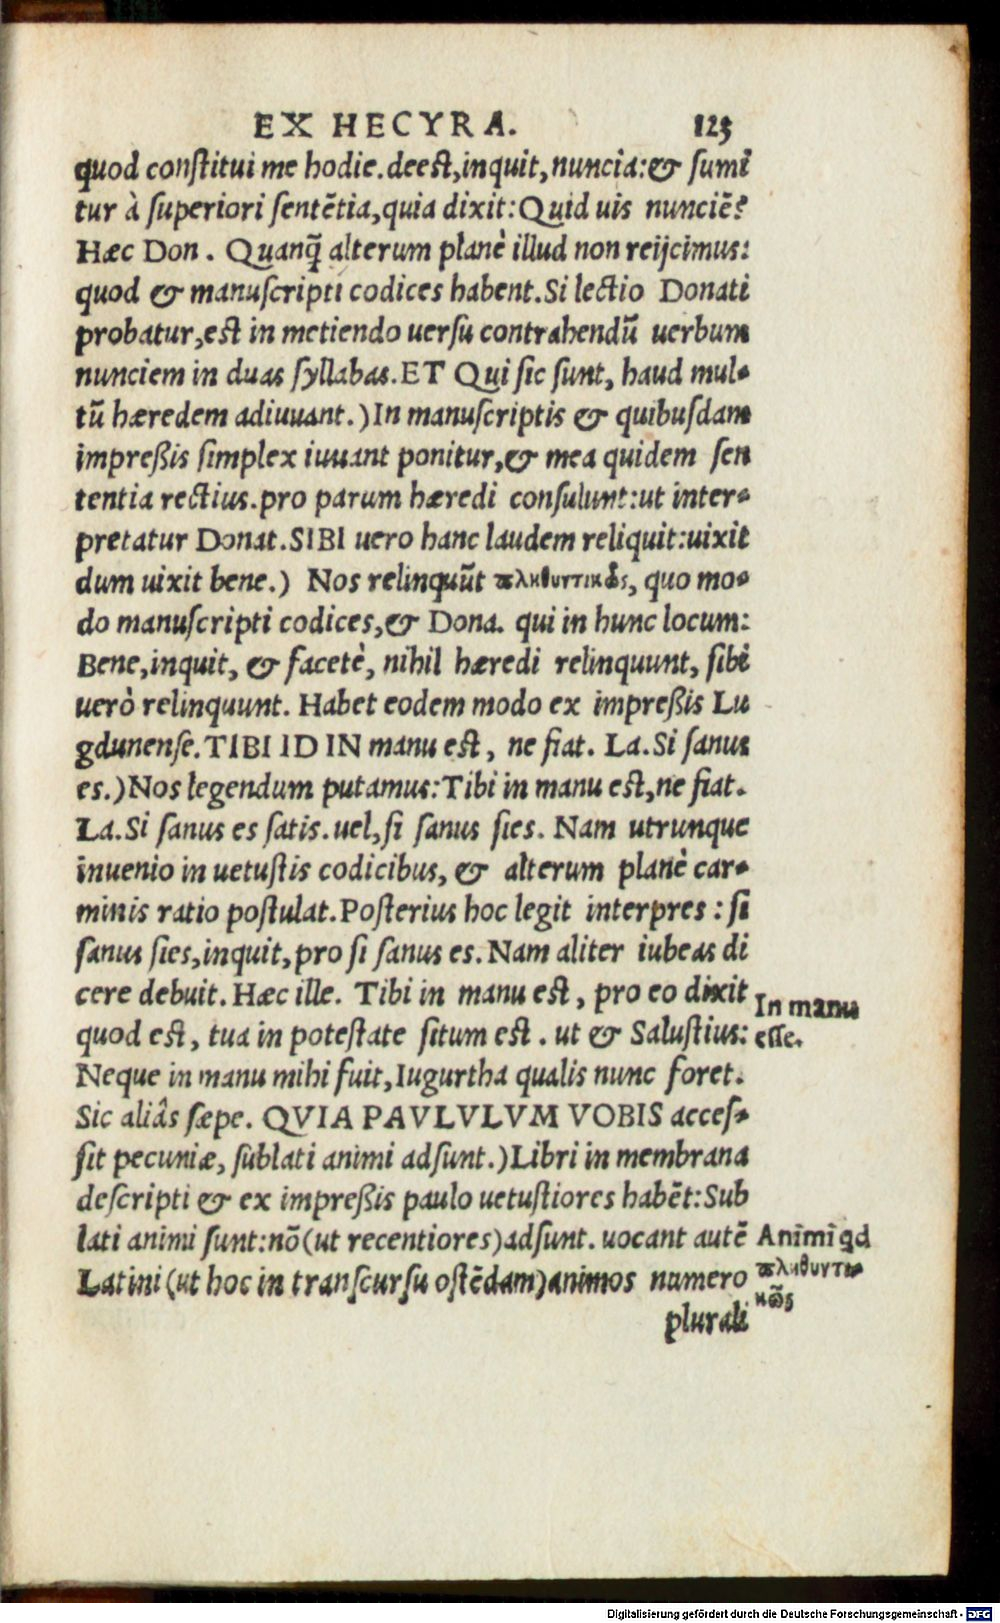 EX HECYRA. 123
quod constitui me hodie. deest, inquit, nuncia: & sumi
tur à superiori sentẽtia, quia dixit: Quid uis nunciẽ?
Hæc Don. Quanq̃ alterum planè illud non reijcimus:
quod & manuscripti codices habent. Si lectio Donati
probatur, est in metiendo uersu contrahendũ uerbum
nunciem in duas syllabas. ET Qui sic sunt, haud mul-
tũ hæredem adiuuant.) In manuscriptis & quibusdam
impreßis simplex iuuant ponitur, & mea quidem sen
tentia rectius. pro parum hæredi consulunt: ut inter-
pretatur Donat. SIBI uero hanc laudem reliquit: uixit
dum uixit bene.) Nos relinquũt πληθυντικῶς, quo mo-
do manuscripti codices, & Dona. qui in hunc locum:
Bene, inquit, & facetè, nihil hæredi relinquunt, sibi
uerò relinquunt. Habet eodem modo ex impreßis Lu
gdunense. TIBI ID IN manu est, ne fiat. La. Si sanus
es.) Nos legendum putamus: Tibi in manu est, ne fiat.
La. Si sanus es satis. uel, si sanus sies. Nam utrunque
inuenio in uetustis codicibus, & alterum planè car-
minis ratio postulat. Posterius hoc legit interpres: si
sanus sies, inquit, pro si sanus es. Nam aliter iubeas di
cere debuit. Hæc ille. Tibi in manu est, pro eo dixit
In manu
esse.
quod est, tua in potestate situm est. ut & Salustius:
Neque in manu mihi fuit, Iugurtha qualis nunc foret.
Sic aliâs sæpe. QVIA PAVLVLVM VOBIS acces-
sit pecuniæ, sublati animi adsunt.) Libri in membrana
descripti & ex impreßis paulo uetustiores habẽt: Sub
lati animi sunt: nõ (ut recentiores) adsunt. uocant autẽ
Animi qd
πληθυντι-
κῶς
Latini (ut hoc in transcursu ostẽdam) animos numero
plurali
Digitalisierung gefördert durch die Deutsche Forschungsgemeinschaft - DFG